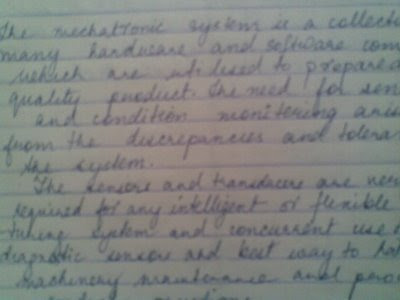 The mechatronic system is a collecti
many hardware and software com
which are utilised to prepare a
quality product. The need for sen
and condition monitoring aris
from the discrepancies and tolera
the system.
The sensors and transducers are nece
required for any intelligent or flexible
turing system and concurrent use o
diagnostic sensors and best way to ha
machinery maintenance and